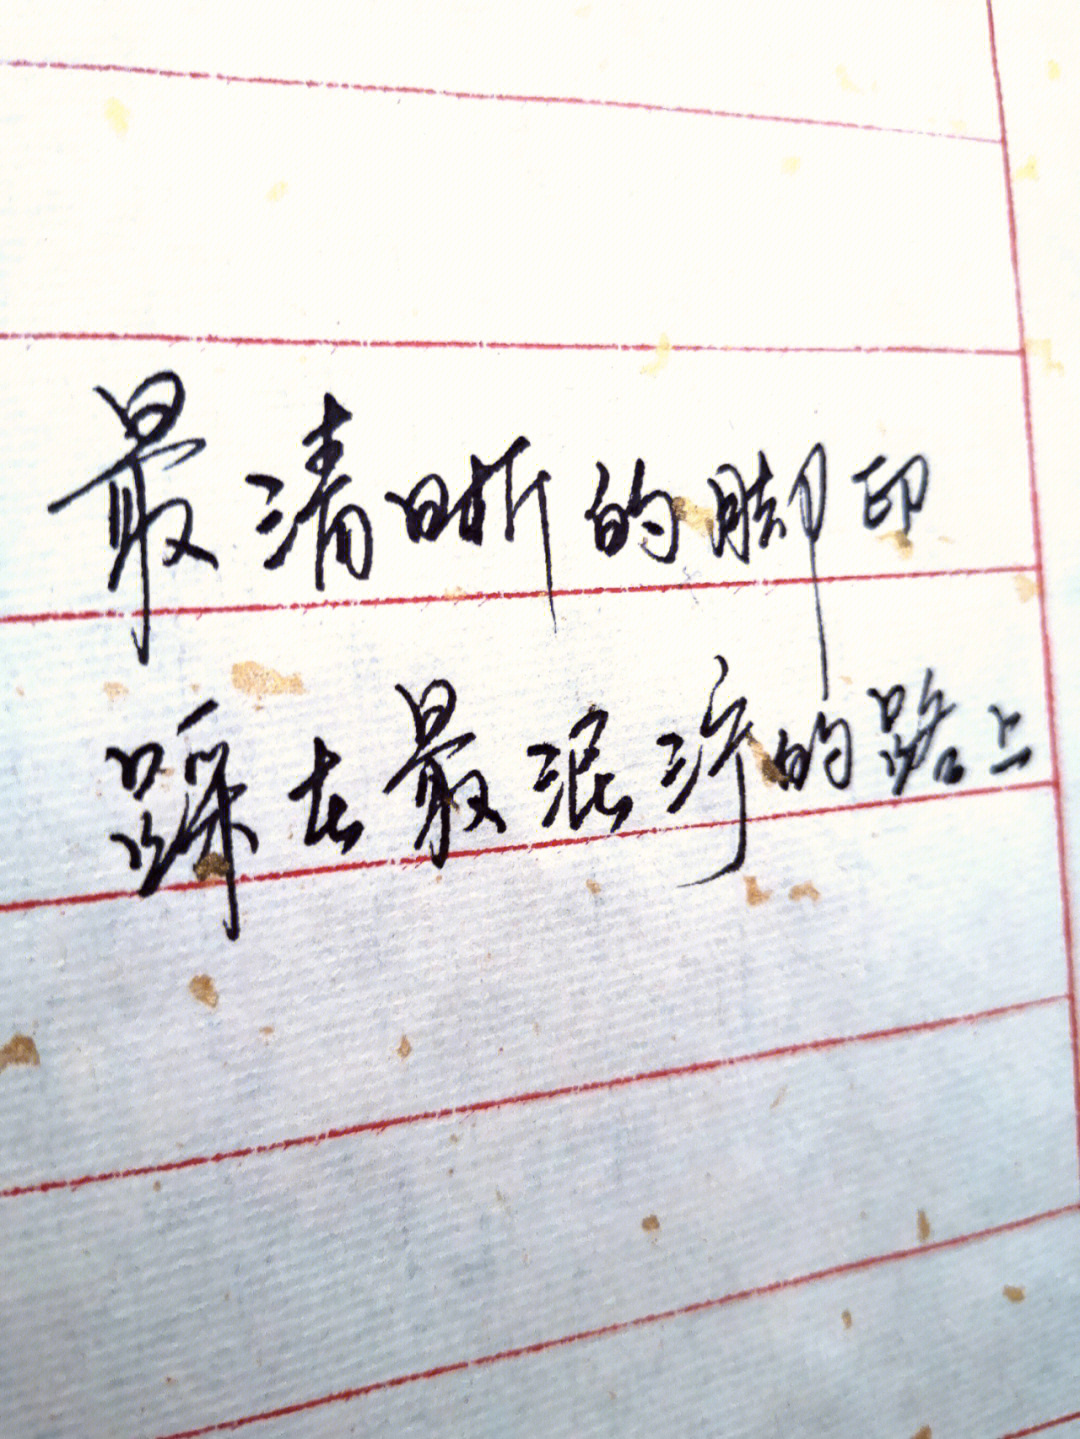 最清晰的脚印
踩在最泥泞的路上